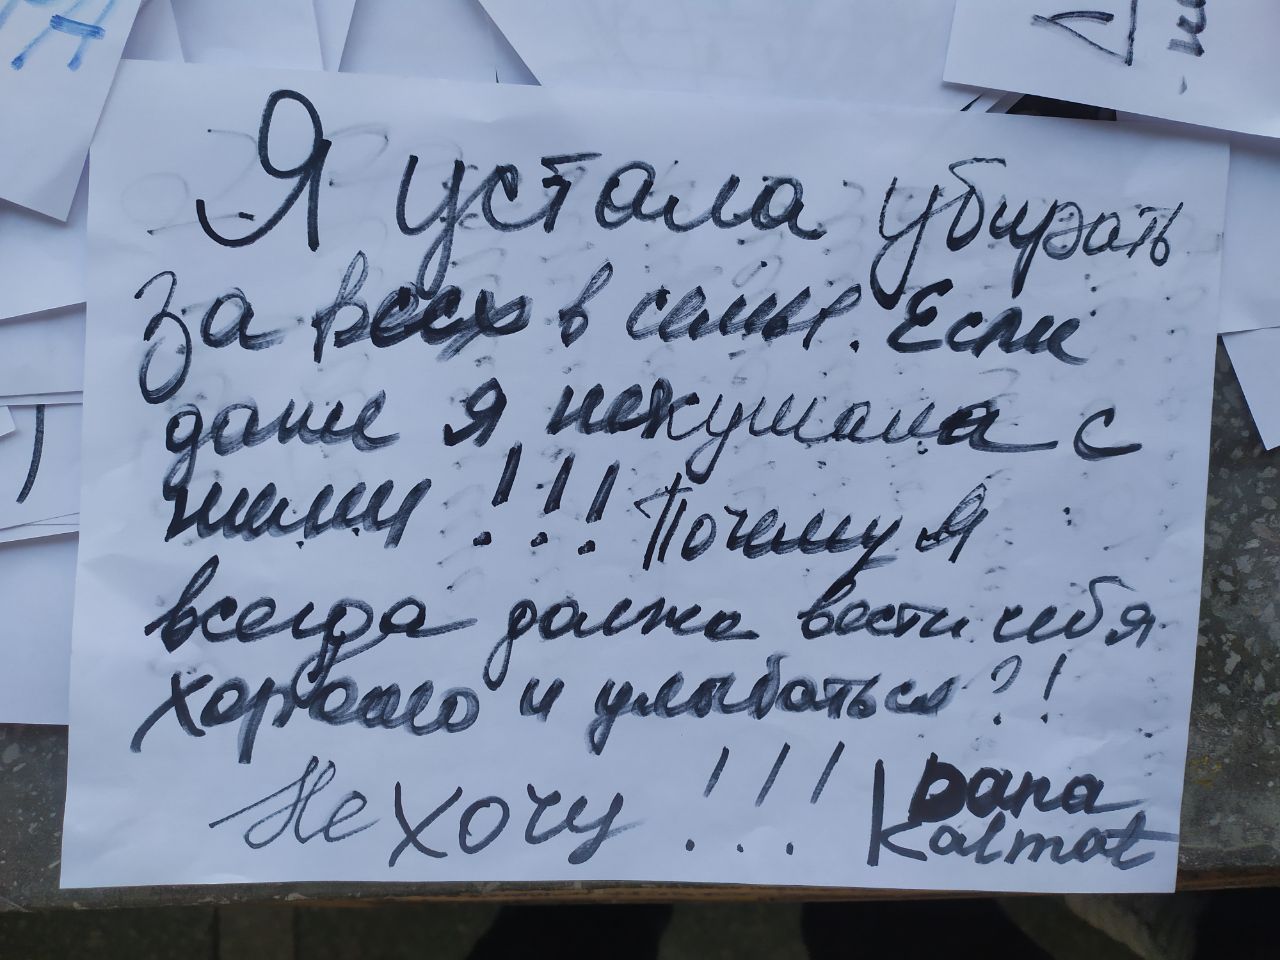 Я устала убирать
за всех в семье. Если
даже я некушала с
ними !!! Почему я
всегда должна вести себя
хорошо и улыбаться?!
Не хочу !!!
Dana
Kalmat